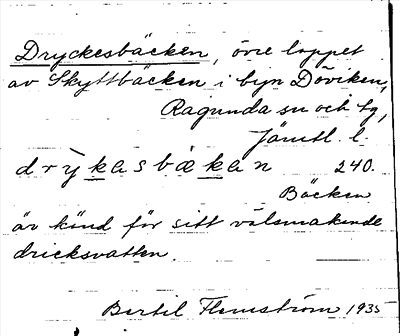 Dryckesbäcken, övre loppet
av Skyttbäcken i byn Döviken,
Ragunda sn och tg,
Jämtl. l.
drykesbæken 240.
Bäcken
är känd för sitt välsmakande
dricksvatten.
Bertil Flemström 1935